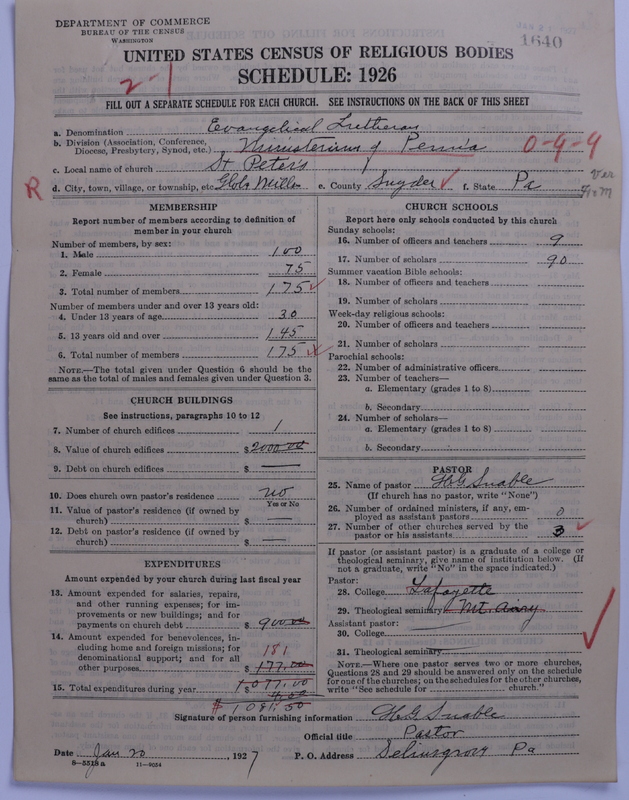 DEPARTMENT OF COMMERCE
BUREAU OF THE CENSUS
WASHINGTON
1640
UNITED STATES CENSUS OF RELIGIOUS BODIES
SCHEDULE: 1926
2-1
FILL OUT A SEPARATE SCHEDULE FOR EACH CHURCH. SEE INSTRUCTIONS ON THE BACK OF THIS SHEET
a. Denomination Evangelical Lutheran
b. Division (Association, Conference, Diocese, Presbytery, Synod, etc.) Ministerium of Penn'a 0-9-9
c. Local name of church St Peter's
R d. City, town, village, or township, etc. Globe Mills e. County Snyder f. State Pa
MEMBERSHIP
Report number of members according to definition of
member in your church
Number of members, by sex:
1. Male 100
2. Female 75
3. Total number of members 175
Number of members under and over 13 years old:
4. Under 13 years of age 30
5. 13 years old and over 145
6. Total number of members 175
NOTE.—The total given under Question 6 should be
same as the total of males and females given under Question 3.
CHURCH BUILDINGS
See instructions, paragraphs 10 to 12
7. Number of church edifices 1
8. Value of church edifices $2000.00
9. Debt on church edifices $ —
10. Does church own pastor's residence no
Yes or No
11. Value of pastor's residence (if owned by
church) $ —
12. Debt on pastor's residence (if owned by
church) $ —
EXPENDITURES
Amount expended by your church during last fiscal year
13. Amount expended for salaries, repairs,
and other running expenses; for im-
provements or new buildings; and for
payments on church debt $900.00
14. Amount expended for benevolences, in-
cluding home and foreign missions; for
denominational support; and for all
other purposes $177.00
181
15. Total expenditures during year $1077.00
$1081.50
CHURCH SCHOOLS
Report here only schools conducted by this church
Sunday schools:
16. Number of officers and teachers 9
17. Number of scholars 90
Summer vacation Bible schools:
18. Number of officers and teachers
19. Number of scholars
Week-day religious schools:
20. Number of officers and teachers
21. Number of scholars
Parochial schools:
22. Number of administrative officers
23. Number of teachers—
a. Elementary (grades 1 to 8)
b. Secondary
24. Number of scholars—
a. Elementary (grades 1 to 8)
b. Secondary
PASTOR
25. Name of pastor H G Snable
(If church has no pastor, write "None")
26. Number of ordained ministers, if any, em-
ployed as assistant pastors 0
27. Number of other churches served by the
pastor or his assistants 3
If pastor (or assistant pastor) is a graduate of a college or
theological seminary, give name of institution below. (If
not a graduate, write "No" in the space indicated.)
Pastor:
28. College Lafayette
29. Theological seminary Mt. Airy
Assistant pastor:
30. College
31. Theological seminary
NOTE.—Where one pastor serves two or more churches,
Questions 28 and 29 should be answered only on the schedule
for one of the churches; on the schedules for the other churches,
write "See schedule for church."
Signature of person furnishing information H G Snable
Official title Pastor
Date Jan 20, 1927 P. O. Address Selinsgrove Pa
8-5518a 11-9054